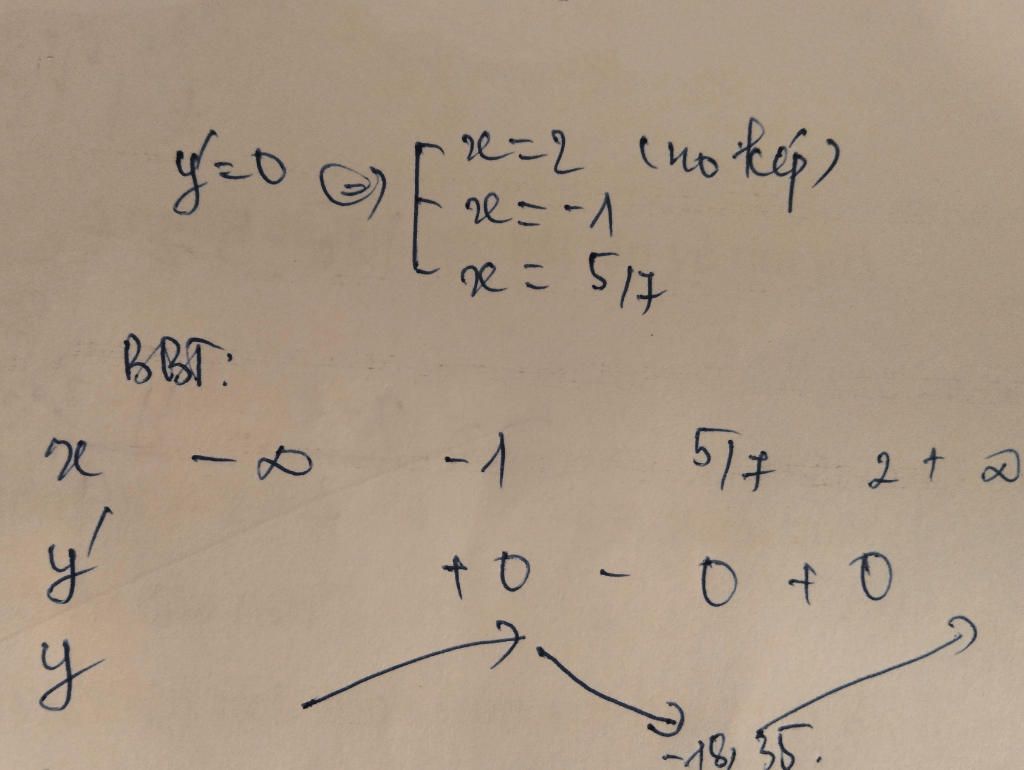 y'=0 (=) [ x=2 (no kép)
x=-1
x = 5/7
BBT:
x -∞ -1 5/7 2 +∞
y' +0 - 0 + 0
y
-18,35.